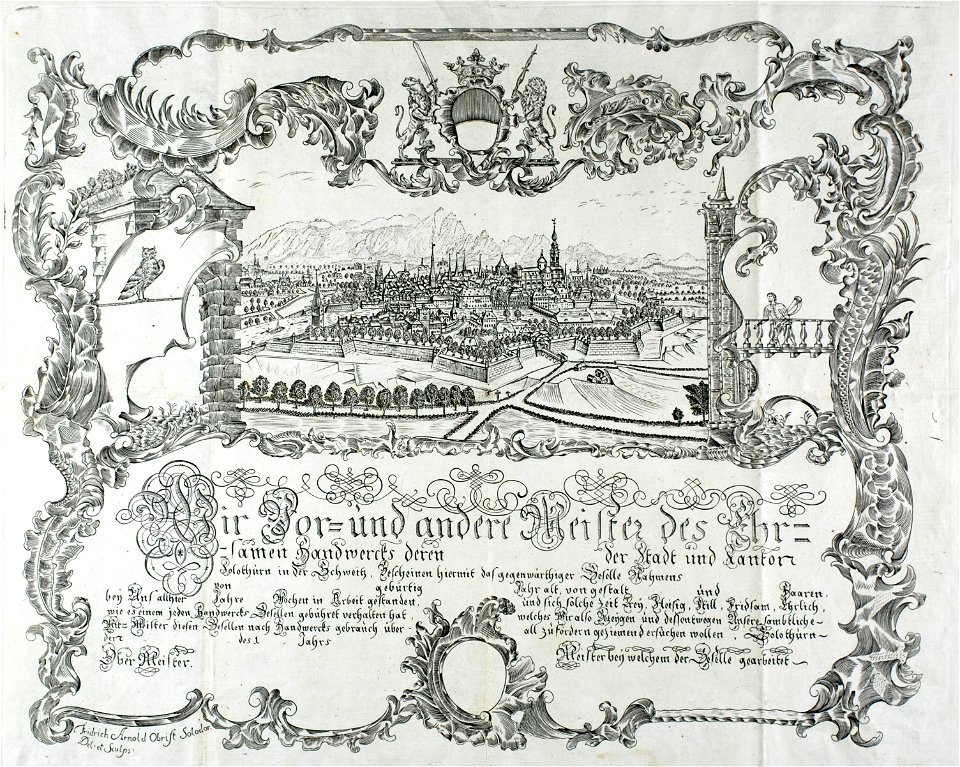 Wir Vor= und andere Meister des Ehr=
=samen Handwercks deren der Stadt und Canton
Solothurn in der Schweitz, Bescheinen hiermit das gegenwärthiger Geselle Nahmens
von gebürtig Jahr alt, von gestalt und Haaren,
bey Uns allhier Jahre Wochen in Arbeit gestanden, und sich solche Zeit Treü, Fleisig, Still, Fridsam, Ehrlich,
wie es einem jeden Handwercks Gesellen gebühret verhalten hat welches Wir also und dessentwegen Unsere sambtliche
Mit=Meister diesen Gesellen nach Handwercks gebrauch über all zu fördern geziemend ersuchen wollen. Solothürn
den des 1 Jahrs
Ober Meister. Meister bey welchem der Geselle gearbeitet
Fridrich Arnold Obrist Solodor
Del: et Sculps: